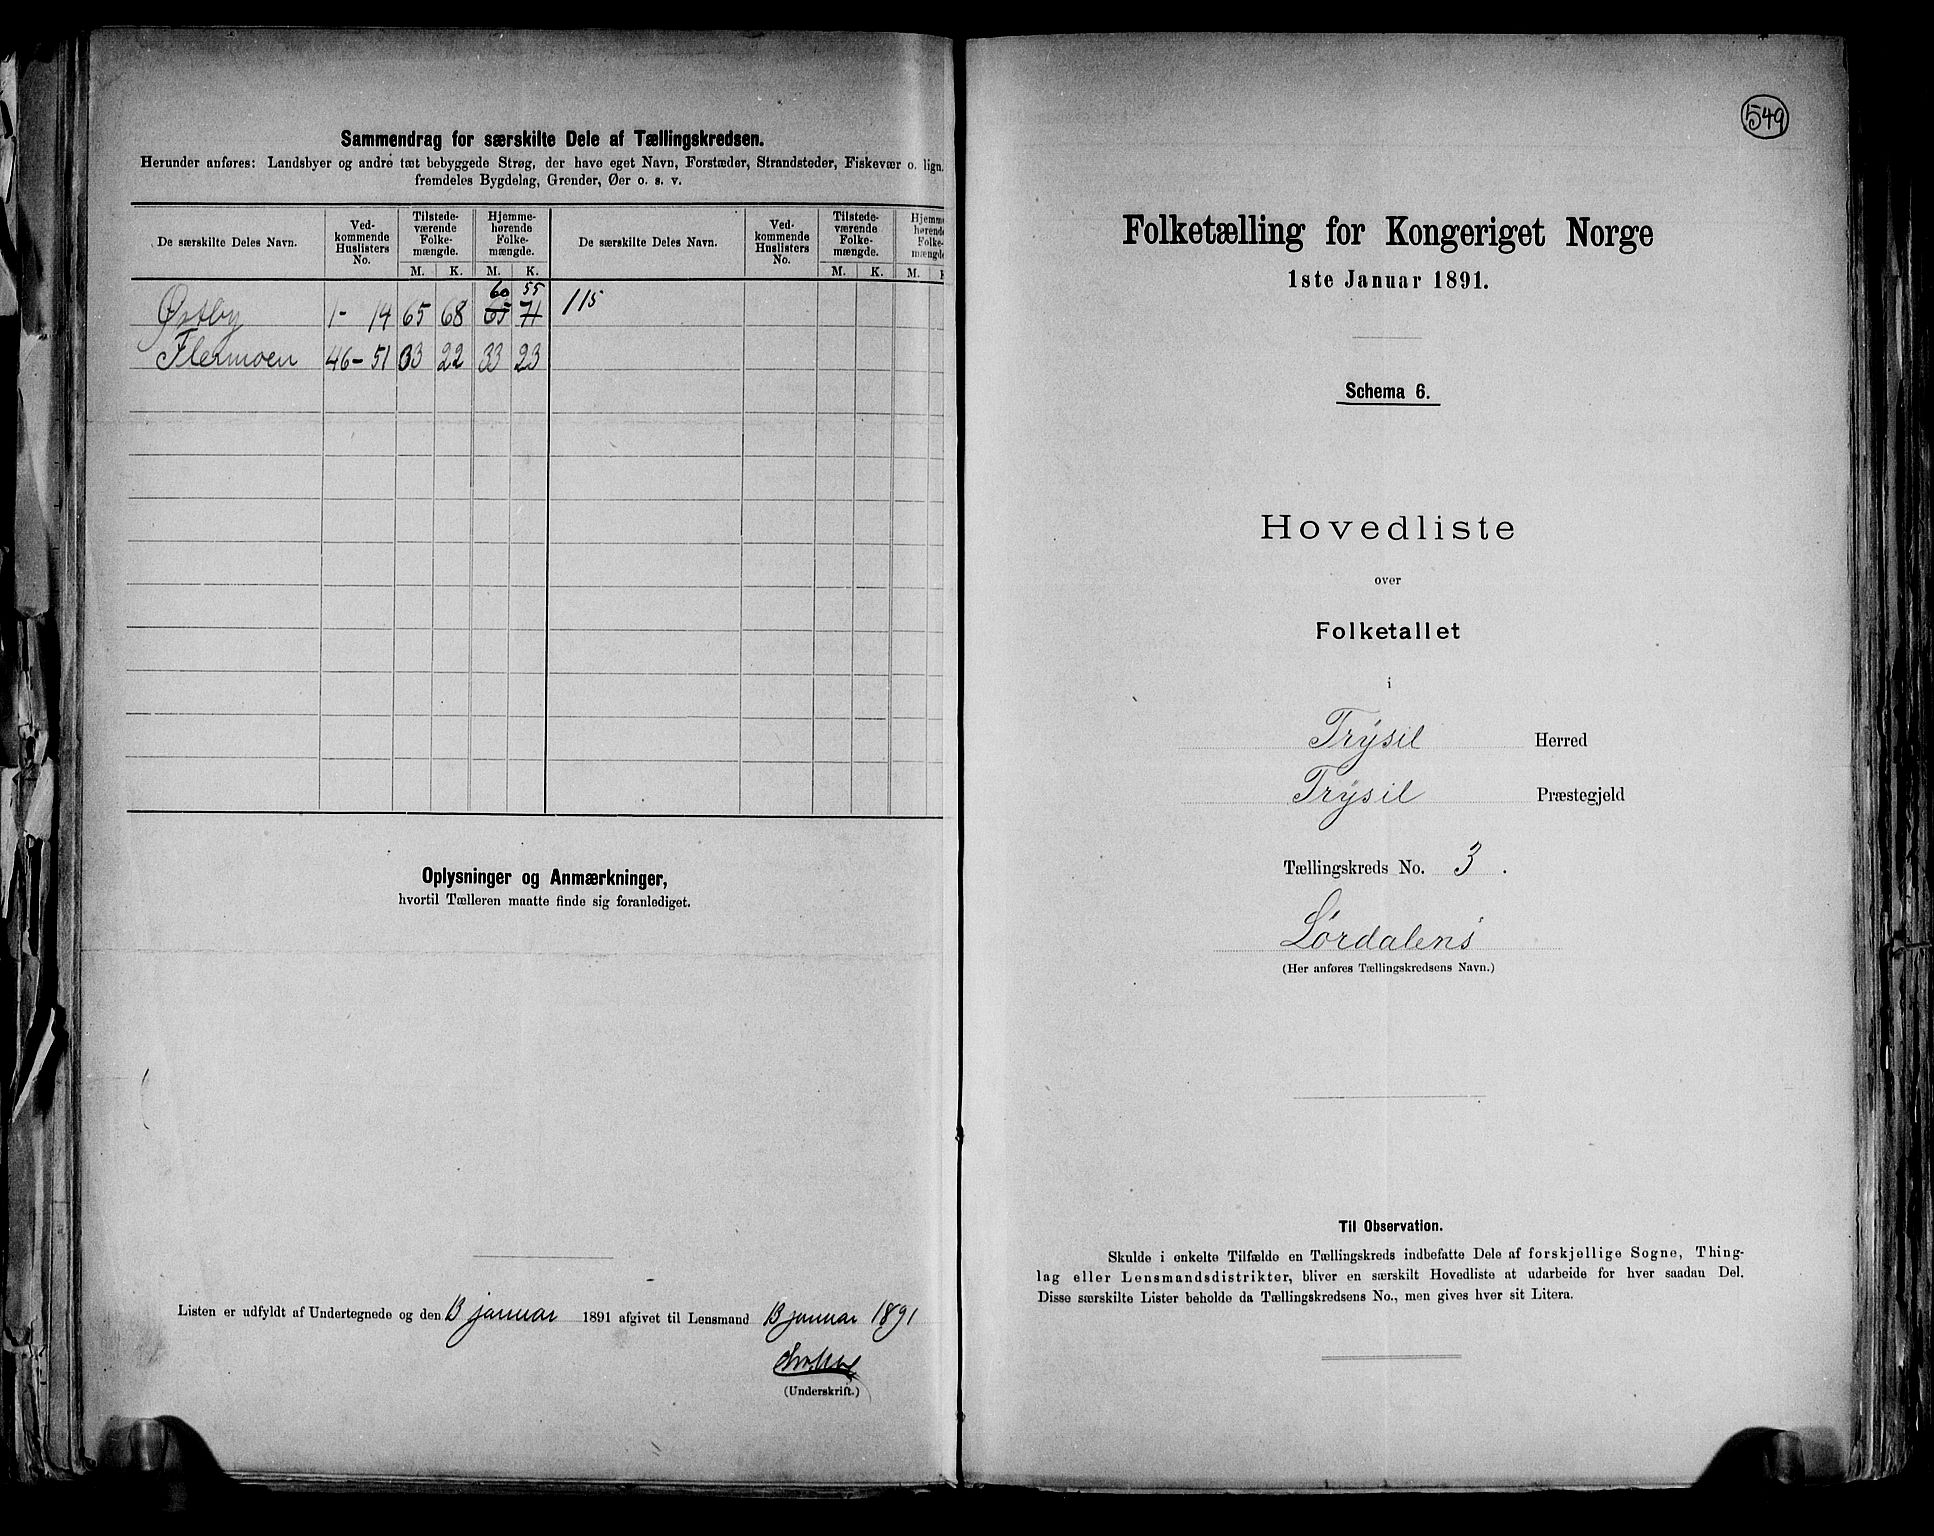 Sammendrag for særskilte Dele af Tællingskredsen.
Herunder anføres: Landsbyer og andre tæt bebyggede Strøg, der have eget Navn, Forstæder, Strandsteder, Fiskevær o. lign.
fremdeles Bygdelag, Grender, Øer o. s. v.
De særskilte Deles Navn. Ved-kommende Huslisters No. Tilstede-værende Folke-mængde. Hjemme-hørende Folke-mængde. De særskilte Deles Navn. Ved-kommende Huslisters No. Tilstede-værende Folke-mængde. Hjemme-hørende Folke-mængde
M. K. M. K. M. K. M. K
60 55
Østby 1 - 14 65 68 65 71 115
Flermoen 46 - 51 33 22 33 23
Oplysninger og Anmærkninger,
hvortil Tælleren maatte finde sig foranlediget.
Listen er udfyldt af Undertegnede og den 13 januar 1891 afgivet til Lensmand 13 januar 1891
(Underskrift.)
549
Folketælling for Kongeriget Norge
1ste Januar 1891.
Schema 6.
Hovedliste
over
Folketallet
i
Trysil Herred
Trysil Præstegjeld
Tællingskreds No. 3.
Lørdalens
(Her anføres Tællingskredsens Navn.)
Til Observation.
Skulde i enkelte Tilfælde en Tællingskreds indbefatte Dele af forskjellige Sogne, Thing-
lag eller Lensmandsdistrikter, bliver en særskilt Hovedliste at udarbeide for hver saadan Del.
Disse særskilte Lister beholde da Tællingskredsens No., men gives hver sit Litera.